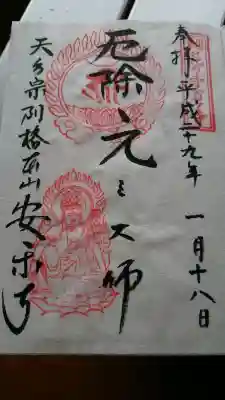 奉拝 平成二十九年 一月十八日
厄除元三大師
天台宗別格本山安楽寺